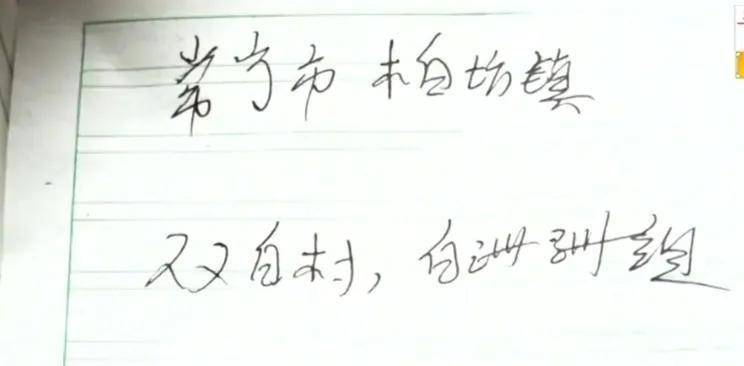 常宁市 柏坊镇
双白村，白洲组